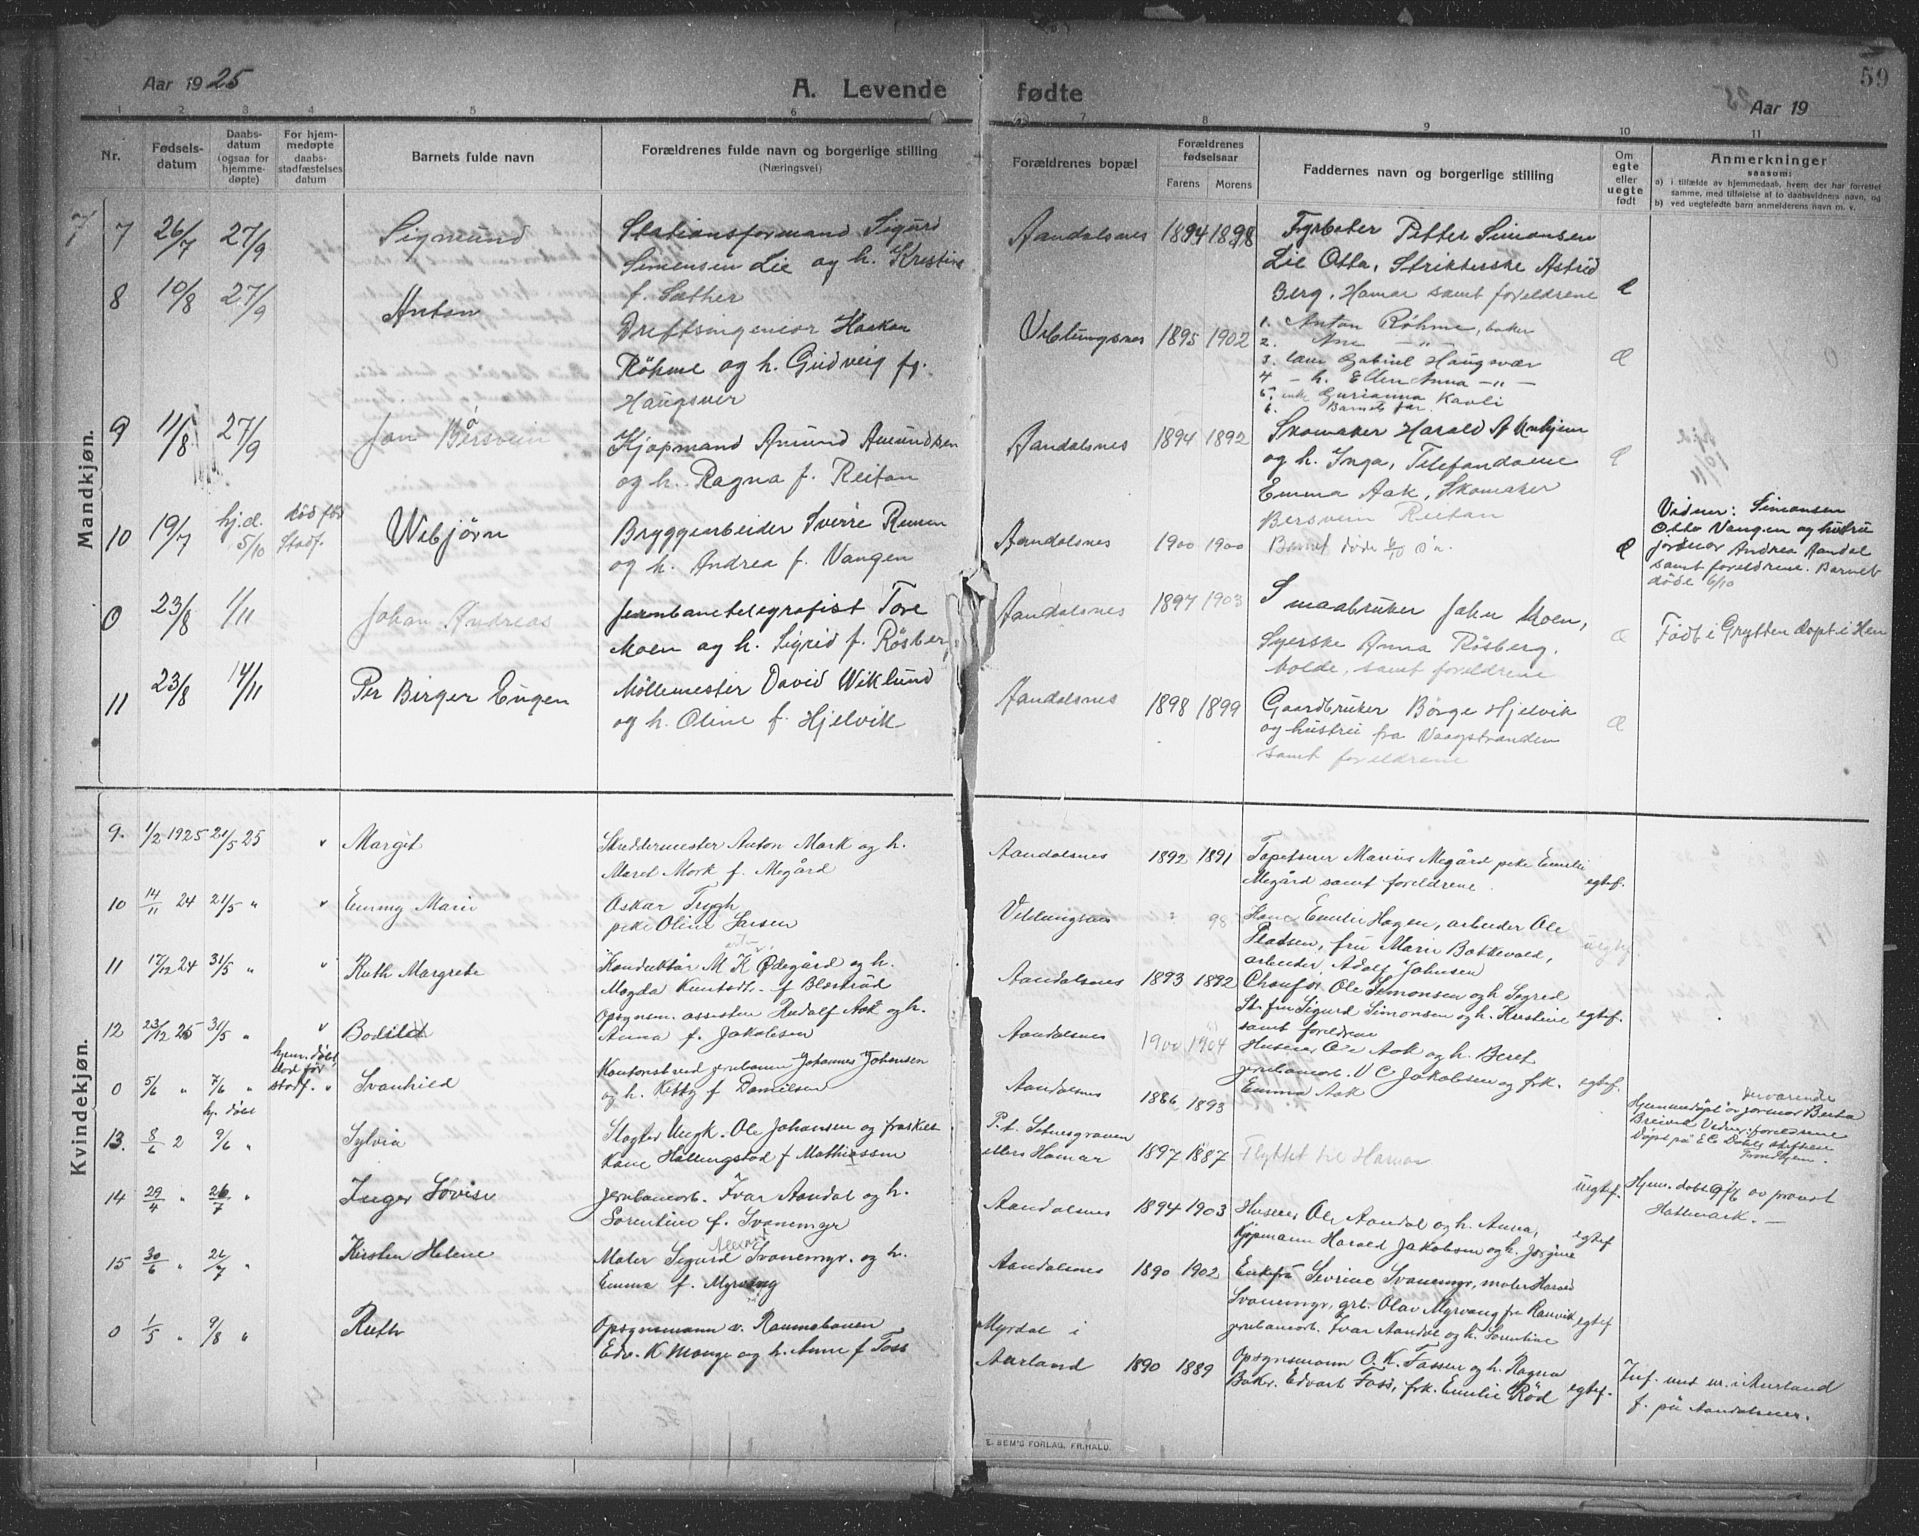 59
Aar 1925
A. Levende fødte
Aar 19
1 2 3 4 5 6 7 8 9 10 11
Nr.
Fødselsdatum
Daabsdatum (ogsaa for hjemmedøpte)
For hjemmedøpte daabsstadfæstelses datum
Barnets fulde navn
Forældrenes fulde navn og borgerlige stilling (Næringsvei)
Forældrenes bopæl
Forældrenes fødselsaar
Farens Morens
Faddernes navn og borgerlige stilling
Om egte eller uegte født
Anmerkninger
saasom:
a) i tilfælde av hjemmedaab, hvem der har forrettet samme, med tilføielse af to daabsvidners navn, og
b) ved uegtefødte barn anmelderens navn m. v.
Mandkjøn.
7 7 26/7 27/9 Sigmund
Stationsformand Sigurd
Simensen Lie og h. Kristine
f. Sæther
Aandalsnes 1894 1898
Fyrbøter Petter Simonsen
Lie Otta, Strikkerske Astrid
Berg, Hamar samt foreldrene
8 10/8 27/9 Anton
Driftsingeniør Haakon
Röhme og h. Gudveig f.
Haugsvær
Veblungsnes 1895 1902
1. Anton Röhme, baker
2. Ane - " -
3. Gabriel Haugsvær
4 - h. Ellen Anna - " -
5. enke Gurianna Kavli
6. Barnets far.
9 11/8 27/9 Jan Bersvein
Kjøpmand Amund Amundsen
og h. Ragna f. Reitan
Aandalsnes 1894 1892
Skomaker Harald
og h. Inga, Telefondame
Emma Aak, Skomaker
Bersvein Reitan
10 19/7 hj.d. 5/10 død før Stadf. Webjörn
Bryggearbeider Sverre
og h. Andrea f. Vangen
Aandalsnes 1900 1900
Barnet døde 6/10
Vidner: Simonsen
Otto Vangen og hustru
jordmor Andrea Aandal
samt foreldrene. Barnet
døde 6/10
0 23/8 1/11 Johan Andreas
Jernbanetelegrafist Tore
Moen og h. Sigrid f. Rösberg
Aandalsnes 1897 1903
Smaabruker John Moen,
Syerske Anna Rösberg,
Molde, samt foreldrene
Født i Grytten døpt i Hen
11 23/8 14/11 Per Birger Eugen
Møllemester David Wiklund
og h. Oline f. Hjelvik
Aandalsnes 1898 1899
Gaardbruker Børge Hjelvik
og hustru fra Vaagstranden
samt foreldrene
Kvindekjøn.
9. 1/2 1925 21/5 25 " Margit
Skreddermester Anton Mork og h.
Maret Mork f. Megård
Aandalsnes 1892 1891
Tapetserer Marius Megård pike Emilie
Megård samt foreldrene.
egtef.
10 14/11 24 21/5 " " Emmy Marie
Oskar Trygh
pike Oline Larsen
Veblungsnes ? 98
Emilie Hagen, arbeider Ole
Pladsen, fru Marie Bakkevold,
arbeider Adolf Johnsen
uegtef
11 17/12 24 31/5 " " Ruth Margrete
Konduktör M K Ødegård og h.
Magda f Blæstrud
Aandalsnes 1893 1892
Chauför Ole Simonsen og h Sigrid
Sigurd Simonsen og h. Kristine
samt foreldrene
egtef.
12 23/12 25 31/5 " " Bodild
Opsynsm. assistent Rudolf Aak og h.
Anna f. Jakobsen
Aandalsnes 1900 1904
Ole Aak og h. Beret
jernbanearb. V C Jakobsen og frk.
Emma Aak
egtef.
0 5/6 " 7/6 hj. døbt hjem. døbt død før stadf. " Svanhild
jernbanen Johannes Johansen
og h. Kitty f Danielsen
Aandalsnes 1886 1893
Hjemmedøpt av jormor Berta
Breivik Vidner: foreldrene
Døpt på E.C. Dahls stiftelse
Trondhjem.
13. 8/6 2 9/6 " Sylvia
Ungk. Ole Johansen og fraskilt
Kone Hallingstad f Mathiassen
P.t. Setnesgraven
ellers Hamar 1897 1887
Flyttet til Hamar
uegtef.
Hjem. døbt 9/6 av provst
Hallmark. -
14 29/4 " 26/7 " Inger Lovise
jernbanearb. Ivar Aandal og h.
Sorentine f. Svanemyr
Aandalsnes 1894 1903
Ole Aandal og h. Anna,
Kjøpmann Harald Jakobsen og h. Jorgine
egtef
15 30/6 " 26/7 " Kirsten Helene
Maler Sigurd Svanemyr og h.
Emma f. Myrvang
Aandalsnes 1890 1902
Enkefru Sevrine Svanemyr, maler Harald
Svanemyr, grb. Olav Myrvang fr Ranvik
jernbanearb. Ivar Aandal og h. Sorentine
egtef
0 1/5 " 9/8 " Ruth
Opsynsmann v. Raumabanen
Edv. K Monge og h. Anne f Foss
Myrdal i
Aurland 1890 1889
Opsynsmann O. K. Fossen og h. Ragna
Baker Edvart Foss, frk. Emilie Röd
egtef.
Inf. med nr. i Aurland
f. på Aandalsnes.
E. SEM'S FORLAG, FR.HALD.